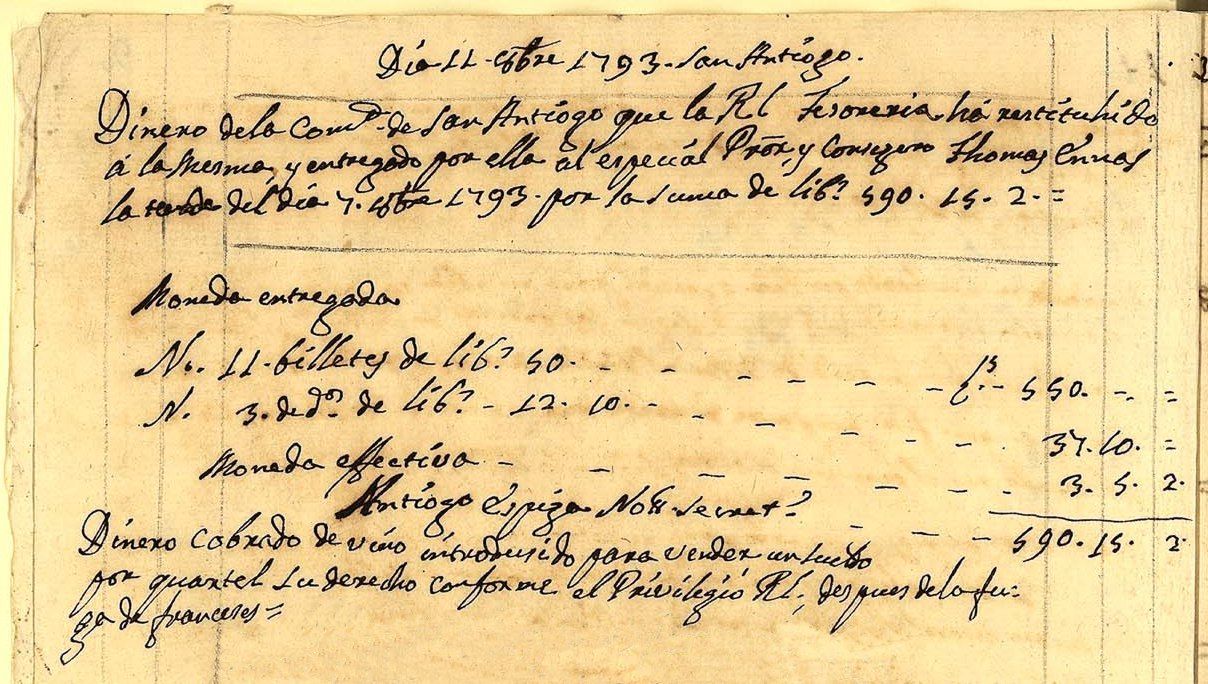 Dia 11. 8bre 1793. San Antiogo.
Dinero dela Comd. de San Antiogo que la Rl Tesoreria ha restituhido
á la Mesma, y entregado por ella al especial Pror, y Consegero Thomas Ennas
la tarde del dia 7. 8bre 1793. por la suma de lib.s 590. 15. 2. =
Moneda entregada
N.. 11. billetes de lib.s 50. - - - - - - - 550. - =
N. 3. de d.os de lib.s - 12. 10. - - - - - - 37. 10. =
Moneda effectiva - - - - - - . 3. 5. 2.
Antiogo Espiga Nott. Secret.o - - - 590. 15. 2.
Dinero cobrado de vino introdusido para vender un sueldo
por quartel su derecho conforme el Privilegio Rl., despues de la fu-
ga de franceses =